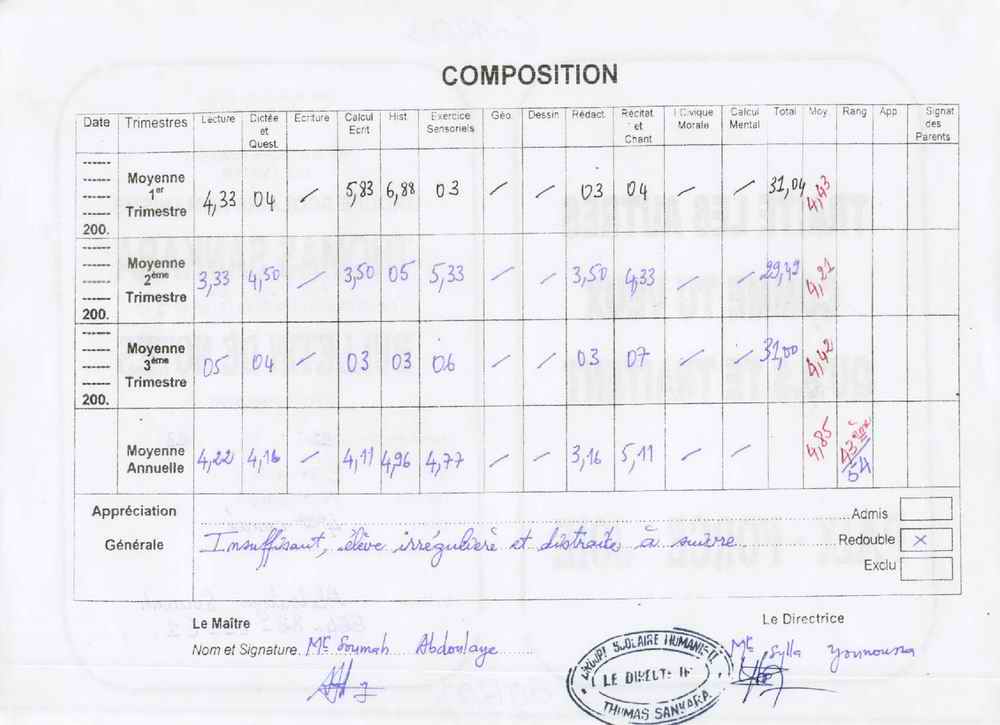 COMPOSITION
Date Trimestres Lecture Dictée et Quest. Ecriture Calcul Ecrit Hist Exercice Sensoriels Géo. Dessin Rédact Récitat et Chant I Civique Morale Calcul Mental Total Moy Rang App Signat des Parents
200. Moyenne 1er Trimestre 4,33 04 / 5,83 6,88 03 / / 03 04 / / 31,04 4,43
200. Moyenne 2ème Trimestre 3,33 4,50 / 3,50 05 5,33 / / 3,50 4,33 / / 29,49 4,21
200. Moyenne 3ème Trimestre 05 04 / 03 03 06 / / 03 07 / / 31,00 4,42
Moyenne Annuelle 4,22 4,16 / 4,11 4,96 4,77 / / 3,16 5,11 / / 4,85 43è 54
Appréciation Générale
Insuffisant, élève irrégulière et distraite à suivre
Admis
Redouble X
Exclu
Le Maître
Nom et Signature. Mr Soumah Abdoulaye
Le Directrice
Mr Sylla Younoussa
GROUPE SCOLAIRE HUMANISTE
LE DIRECTEUR
THOMAS SANKARA